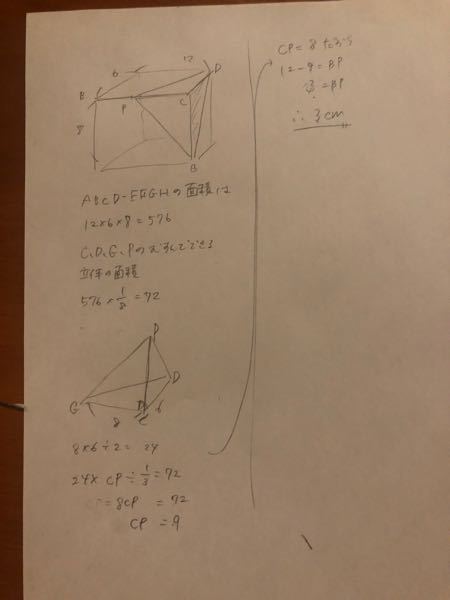 6
12
D
B
P
C
8
G
ABCD-EFGHの面積は
12×6×8=576
C、D、G、Pのむすんでできる
立体の面積
576×1/8=72
P
G
D
C
8
6
8×6÷2=24
24×CP÷1/3=72
=8CP=72
CP=9
CP=8だから
12-9=BP
3=BP
∴3cm